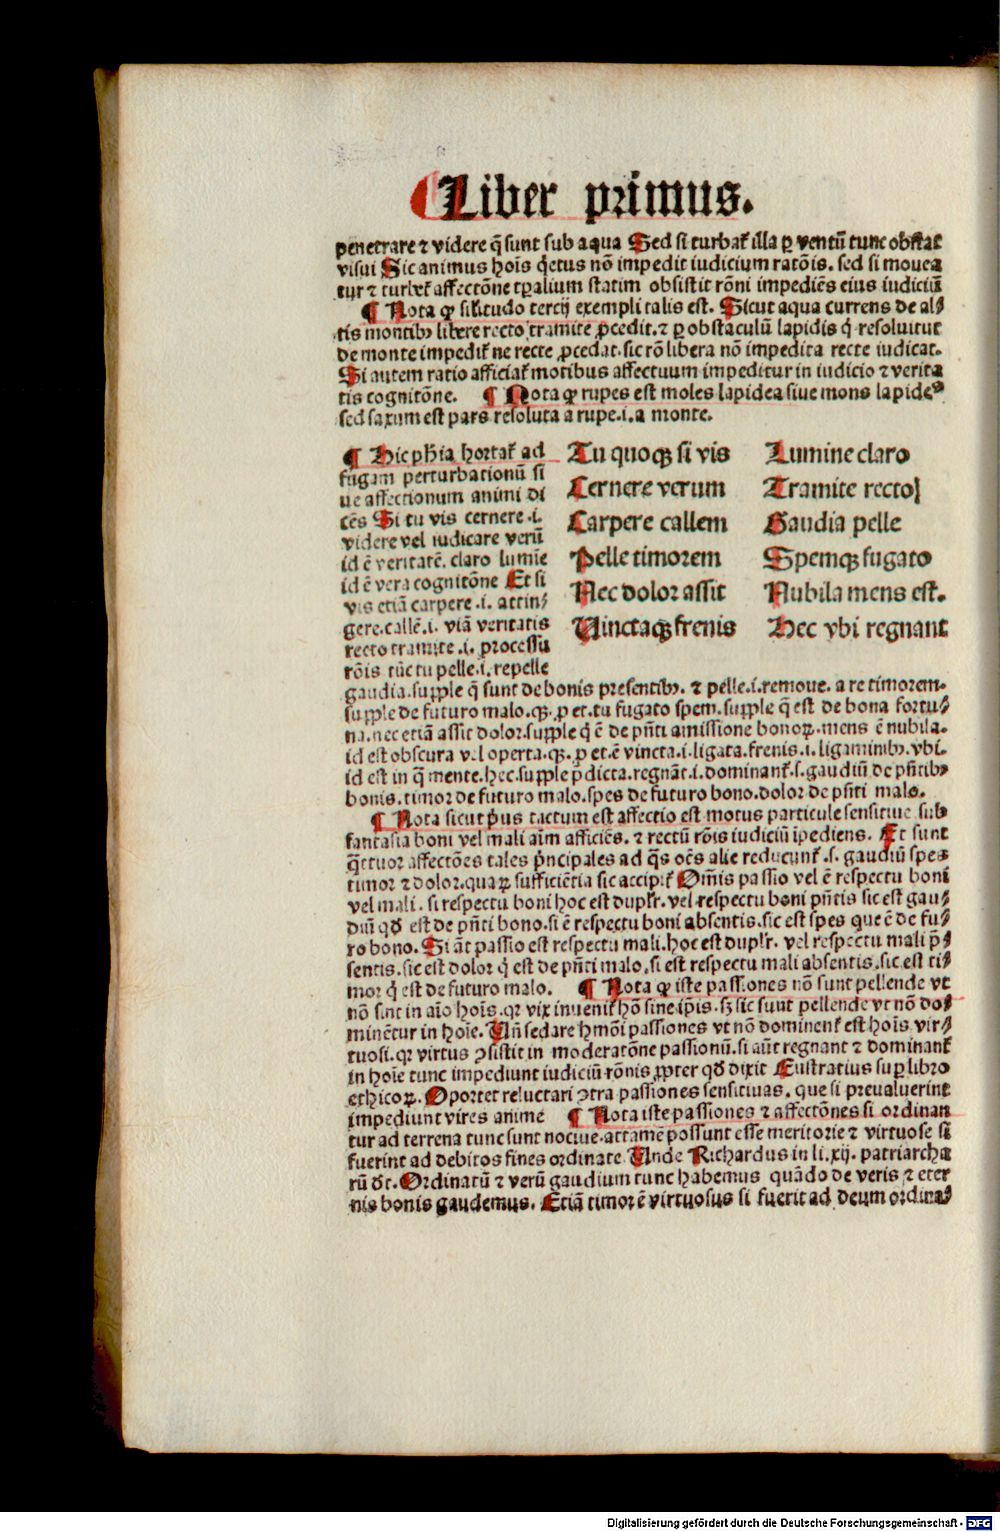 Liber primus.
penetrare ⁊ videre q̄ sunt sub aqua Sed si turbat᷑ illa ꝑ ventū tunc obstat
visui Sic animus hoīs q̇etus nō impedit iudicium ratōis. sed si mouea
tur ⁊ turbet᷑ affectōne tꝑalium statim obsistit rōni impediēs eius iudiciū
¶ Nota ꝙ silitudo tercij exempli talis est. Sicut aqua currens de al⸗
tis montibꝰ libere recto tramite ꝓcedit. ⁊ ꝑ obstaculū lapidis q̇ resoluitur
de monte impedit᷑ ne recte ꝓcedat. sic rō libera nō impedita recte iudicat.
Si autem ratio afficiat᷑ motibus affectuum impeditur in iudicio ⁊ verita
tis cognitōne. ¶ Nota ꝙ rupes est moles lapidea siue mons lapideꝰ
sed saxum est pars resoluta a rupe .i. a monte.
¶ Hic pħia hortat᷑ ad
fugam perturbationū si
ue affectionum animi di
cēs Si tu vis cernere .i.
videre vel iudicare verū
id ē veritatē. claro lumīe
id ē vera cognitōne Et si
vis etiā carpere .i. attin⸗
gere. callē .i. viā veritatis
recto tramite .i. processu
rōis tūc tu pelle .i. repelle
Tu quoqꝫ si vis
Cernere verum
Carpere callem
Pelle timorem
Nec dolor assit
Uinctaqꝫ frenis
Lumine claro
Tramite recto
Gaudia pelle
Spemqꝫ fugato
Nubila mens est.
Hec vbi regnant
gaudia. supple q̄ sunt de bonis presentibꝰ. ⁊ pelle .i. remoue. a te timorem.
supple de futuro malo. qꝫ. ꝓ et. tu fugato spem. supple q̄ est de bona fortu⸗
na. nec etiā assit dolor. supple q̇ ē de pn̄ti amissione bonoꝝ. mens ē nubila.
id est obscura vel operta. qꝫ. ꝓ et. ē vincta .i. ligata. frenis .i. ligaminibꝰ. vbi.
id est in q̄ mente. hec. supple p̄dicta. regnāt .i. dominant᷑ .s. gaudiū de pn̄tibꝰ
bonis. timor de futuro malo. spes de futuro bono. dolor de pn̄ti malo.
¶ Nota sicut pͥus tactum est affectio est motus particule sensitiue sub
fantasia boni vel mali aīm afficiēs. ⁊ rectū rōis iudiciū īpediens. Et sunt
q̄ttuor affectōes tales pͥncipales ad q̄s oēs alie reducunt᷑ .s. gaudiū spes
timor ⁊ dolor. quaꝝ sufficiētia sic accipit᷑ Om̄is passio vel ē respectu boni
vel mali. si respectu boni hoc est duplr̄. vel respectu boni pn̄tis sic est gau⸗
diū qđ est de pn̄ti bono. si ē respectu boni absentis. sic est spes que ē de fu⸗
ro bono. Si āt passio est respectu mali. hoc est duplr̄. vel respectu mali p̄⸗
sentis. sic est dolor q̇ est de pn̄ti malo. si est respectu mali absentis. sic est ti⸗
mor q̇ est de futuro malo. ¶ Nota ꝙ iste passiones nō sunt pellende vt
nō sint in aīo hoīs. qꝛ vix inuenit᷑ hō sine ip̄is. sꝫ sic sunt pellende vt nō do⸗
minētur in hoīe. Un̄ sedare hmōi passiones vt nō dominent᷑ est hoīs vir⸗
tuosi. qꝛ virtus ꝯsistit in moderatōne passionū. si aūt regnant ⁊ dominant᷑
in hoīe tunc impediunt iudiciū rōnis ꝓpter qđ dixit Eustratius suꝑ libro
ethicoꝝ. Oportet reluctari ꝯtra passiones sensitiuas. que si preualuerint
impediunt vires anime ¶ Nota iste passiones ⁊ affectōnes si ordinan
tur ad terrena tunc sunt nociue. attamē possunt esse meritorie ⁊ virtuose si
fuerint ad debitos fines ordinate Unde Richardus in li. xij. patriarcha
rū dt̄. Ordinatū ⁊ verū gaudium tunc habemus quādo de veris ⁊ eter
nis bonis gaudemus. Etiā timor ē virtuosus si fuerit ad deum ordina⸗
Digitalisierung gefördert durch die Deutsche Forschungsgemeinschaft - DFG